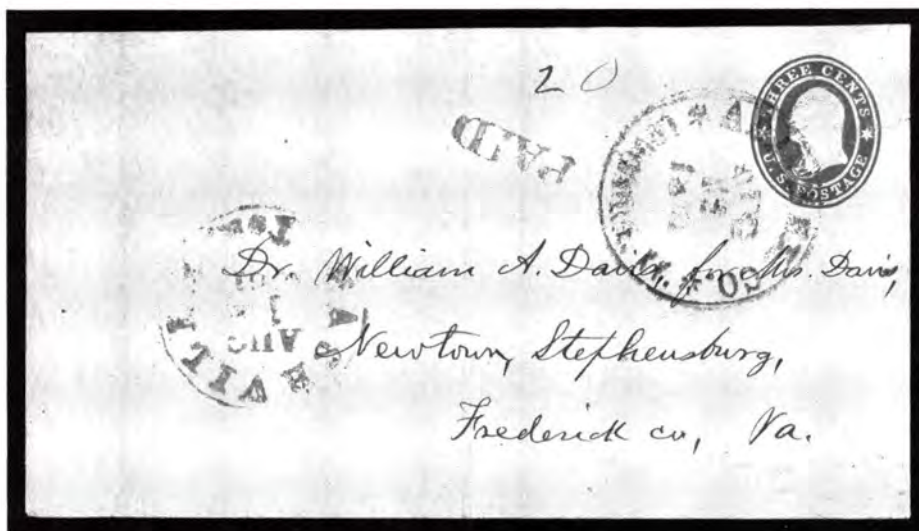 20
PAID
THREE CENTS
U.S. POSTAGE
AUG
Dr. William A. Davis, for Mrs. Davis,
Newtown, Stephensburg,
Frederick co, Va.